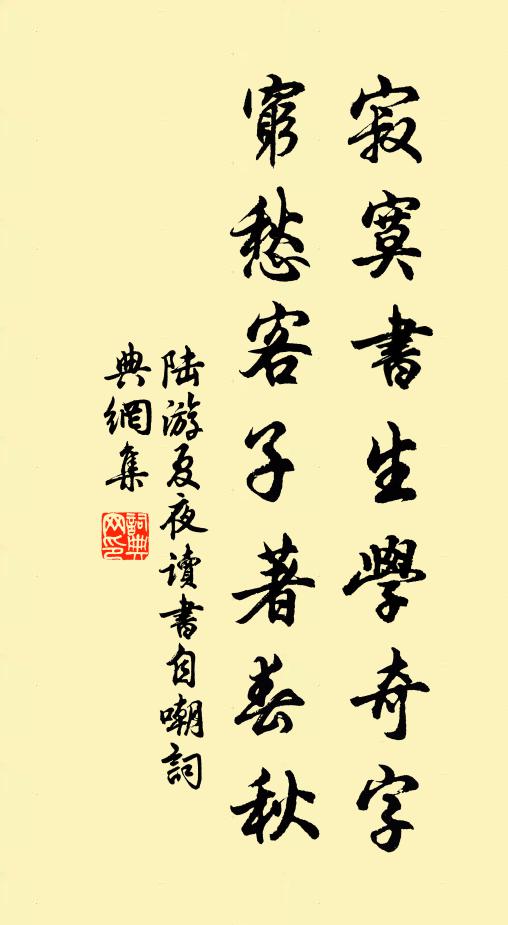 寂寞書生學奇字
窮愁客子著春秋
陆游夏夜讀書自嘲詞
典網集
詞典
网印